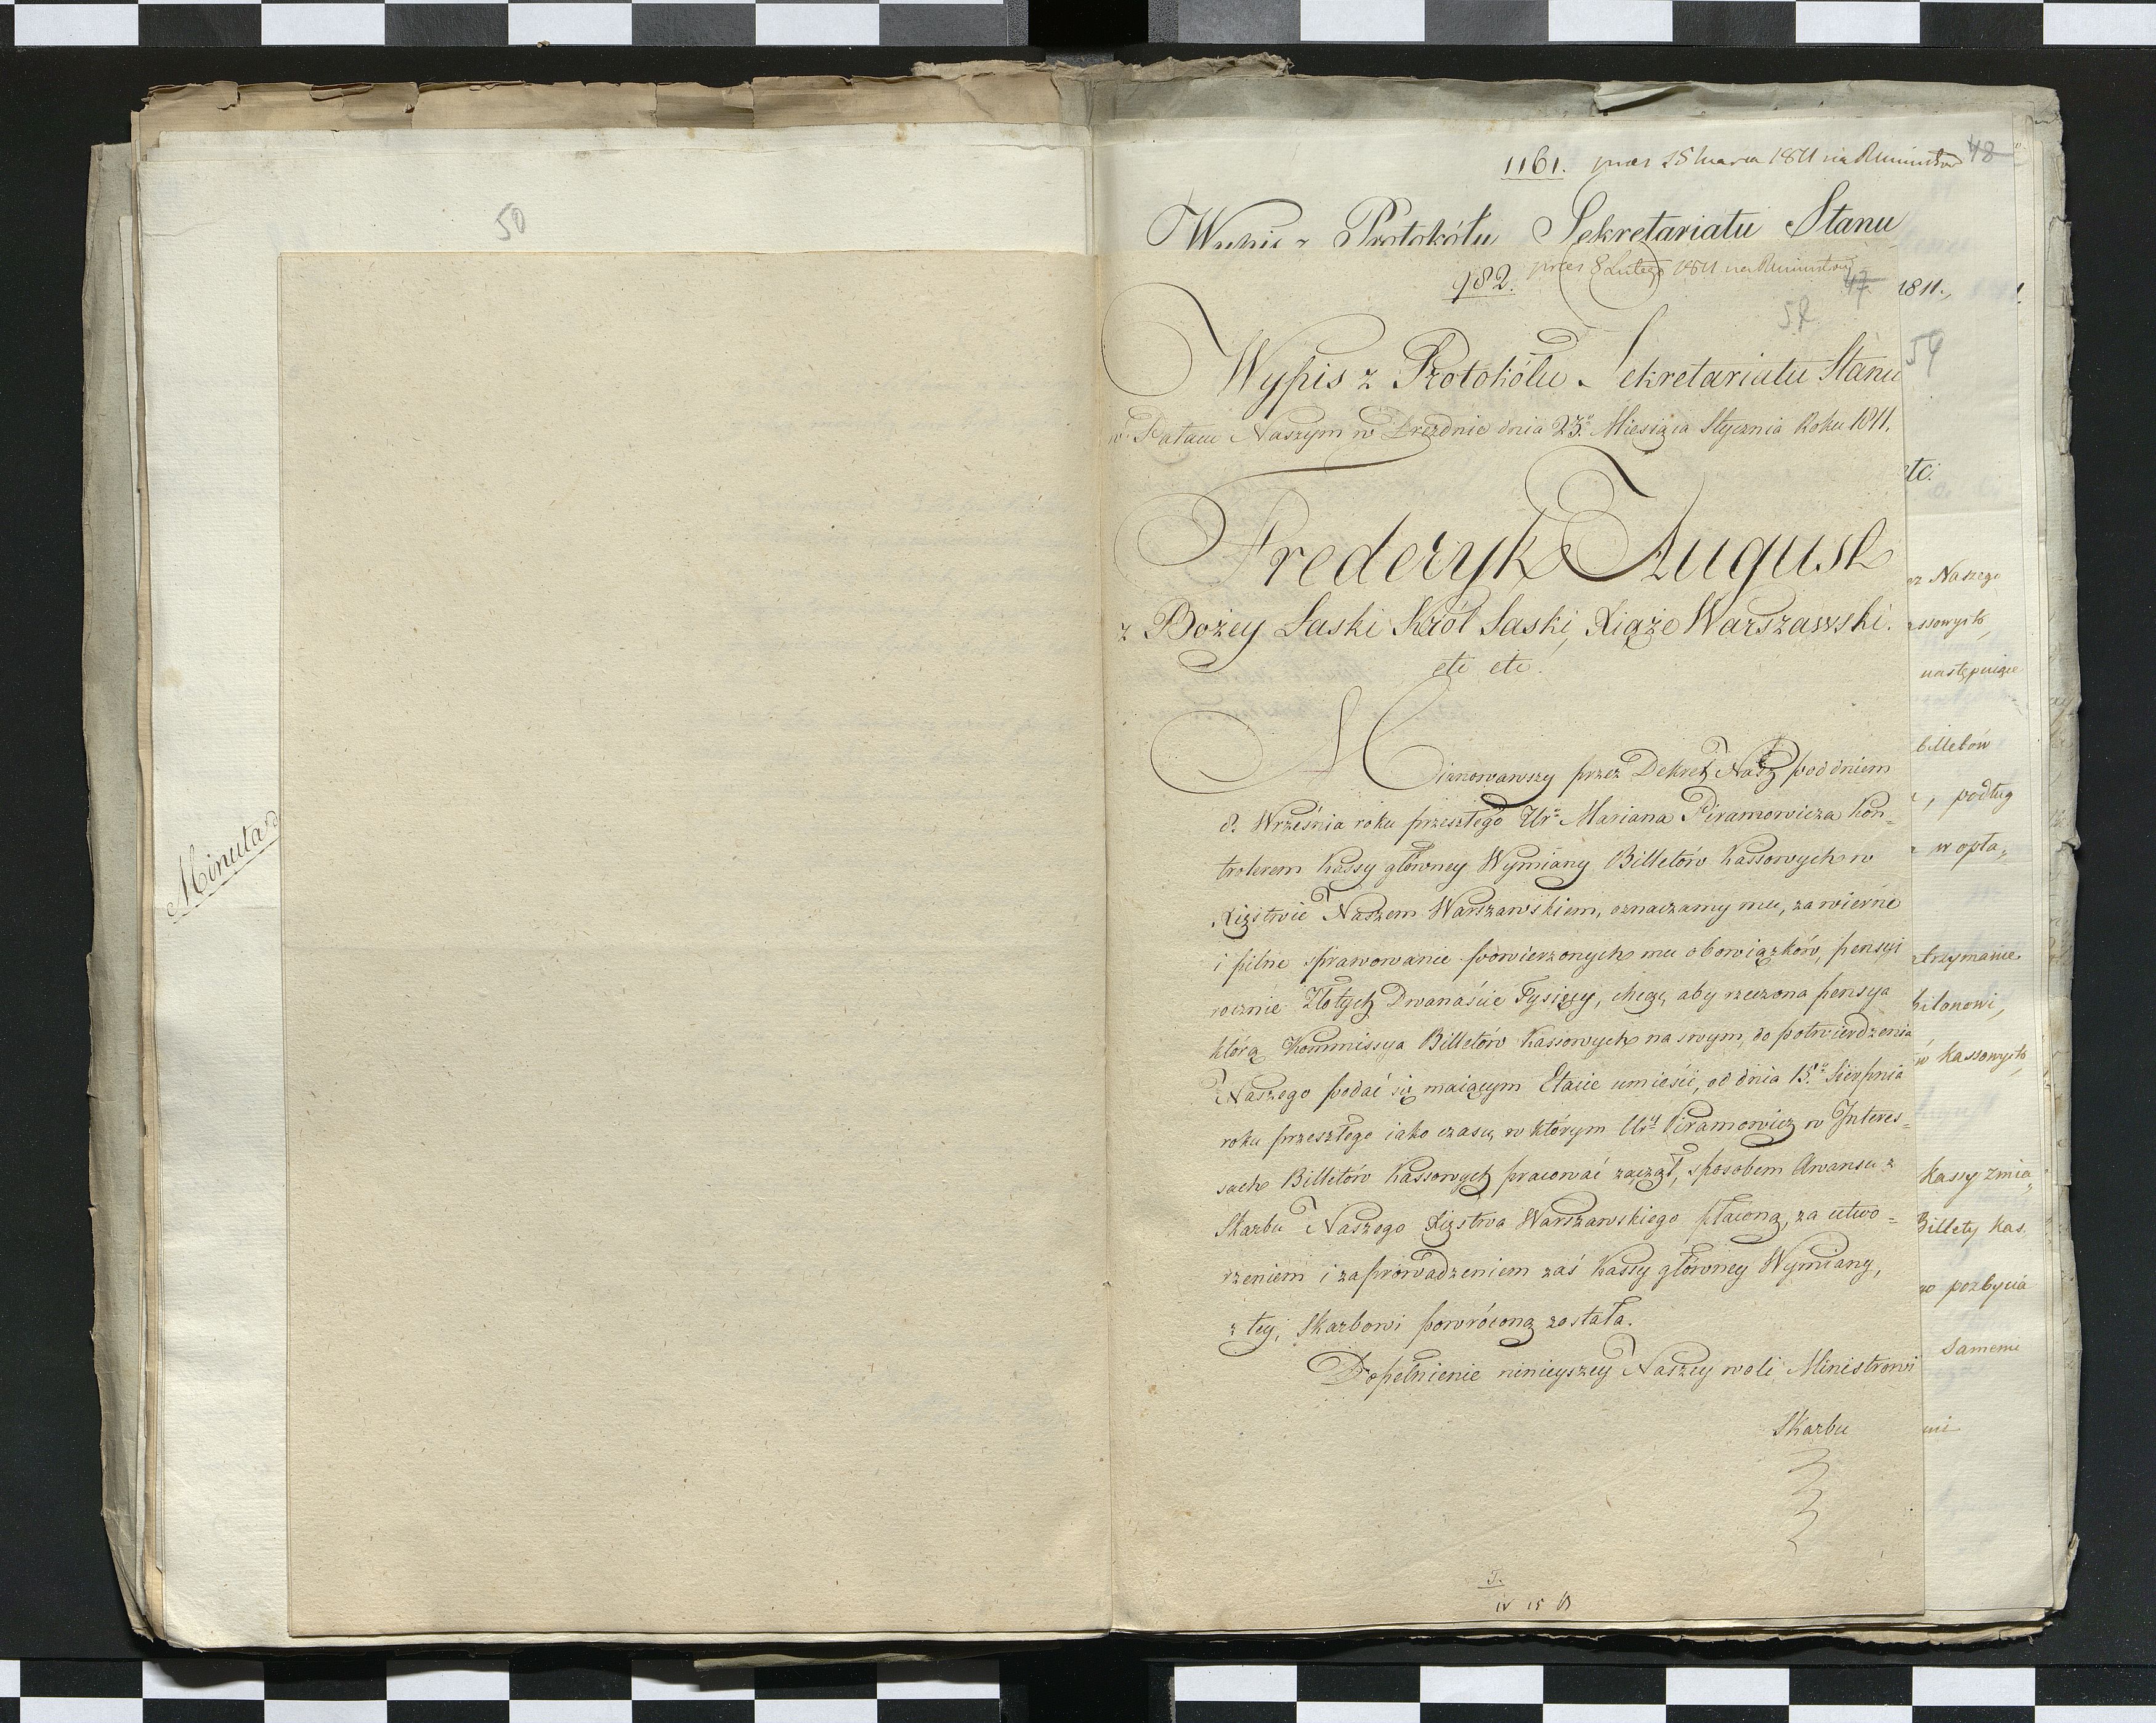 50
Minuta
1161. praes 15 Marca 1811 na Ministrow 48
Wypis z Protokółu Sekretariatu Stanu
982. praes 8 Lutego 1811 na Ministrow 47
1811.
52
54
Wypis z Protokółu Sekretariatu Stanu
w Pałacu Naszym w Dreznie dnia 23o Miesiąca Stycznia Roku 1811.
etc.
Frederyk August
z Bożey Łaski Król Saski, Xiąże Warszawski.
etc etc.
Mianowawszy przez Dekret Nasz pod dniem
8. Września roku przeszłego Uro Mariana Piramowicza Kon=
trolerem Kassy główney Wymiany Billetów Kassowych w
Xięstwie Naszem Warszawskiem, oznaczamy mu, za wierne
i pilne sprawowanie powierzonych mu obowiązków, pensyi
rocznie Złotych Dwanaście Tysięcy, chcąc, aby rzeczona pensya
którą Kommissya Billetów Kassowych na swym, do potwierdzenia
Naszego podać się maiącym Etacie umieści, od dnia 15o Sierpnia
roku przeszłego iako czasu, w którym Ury Piramowicz w Interes=
sach Billetów Kassowych pracować zaczął, sposobem Awansu z
Skarbu Naszego Xięstwa Warszawskiego płaconą, za utwo=
rzeniem i zaprowadzeniem zaś Kassy główney Wymiany,
z tey, Skarbowi powróconą została.
Dopełnienie ninieyszey Naszey woli Ministrowi
Skarbu
Naszego
ssowych,
następuiące
billetów
, podług
w opła,
trzymanie
bilonowi,
w Kassowych,
Kassy zmia,
Billety Kas.
pozbycia
samemu